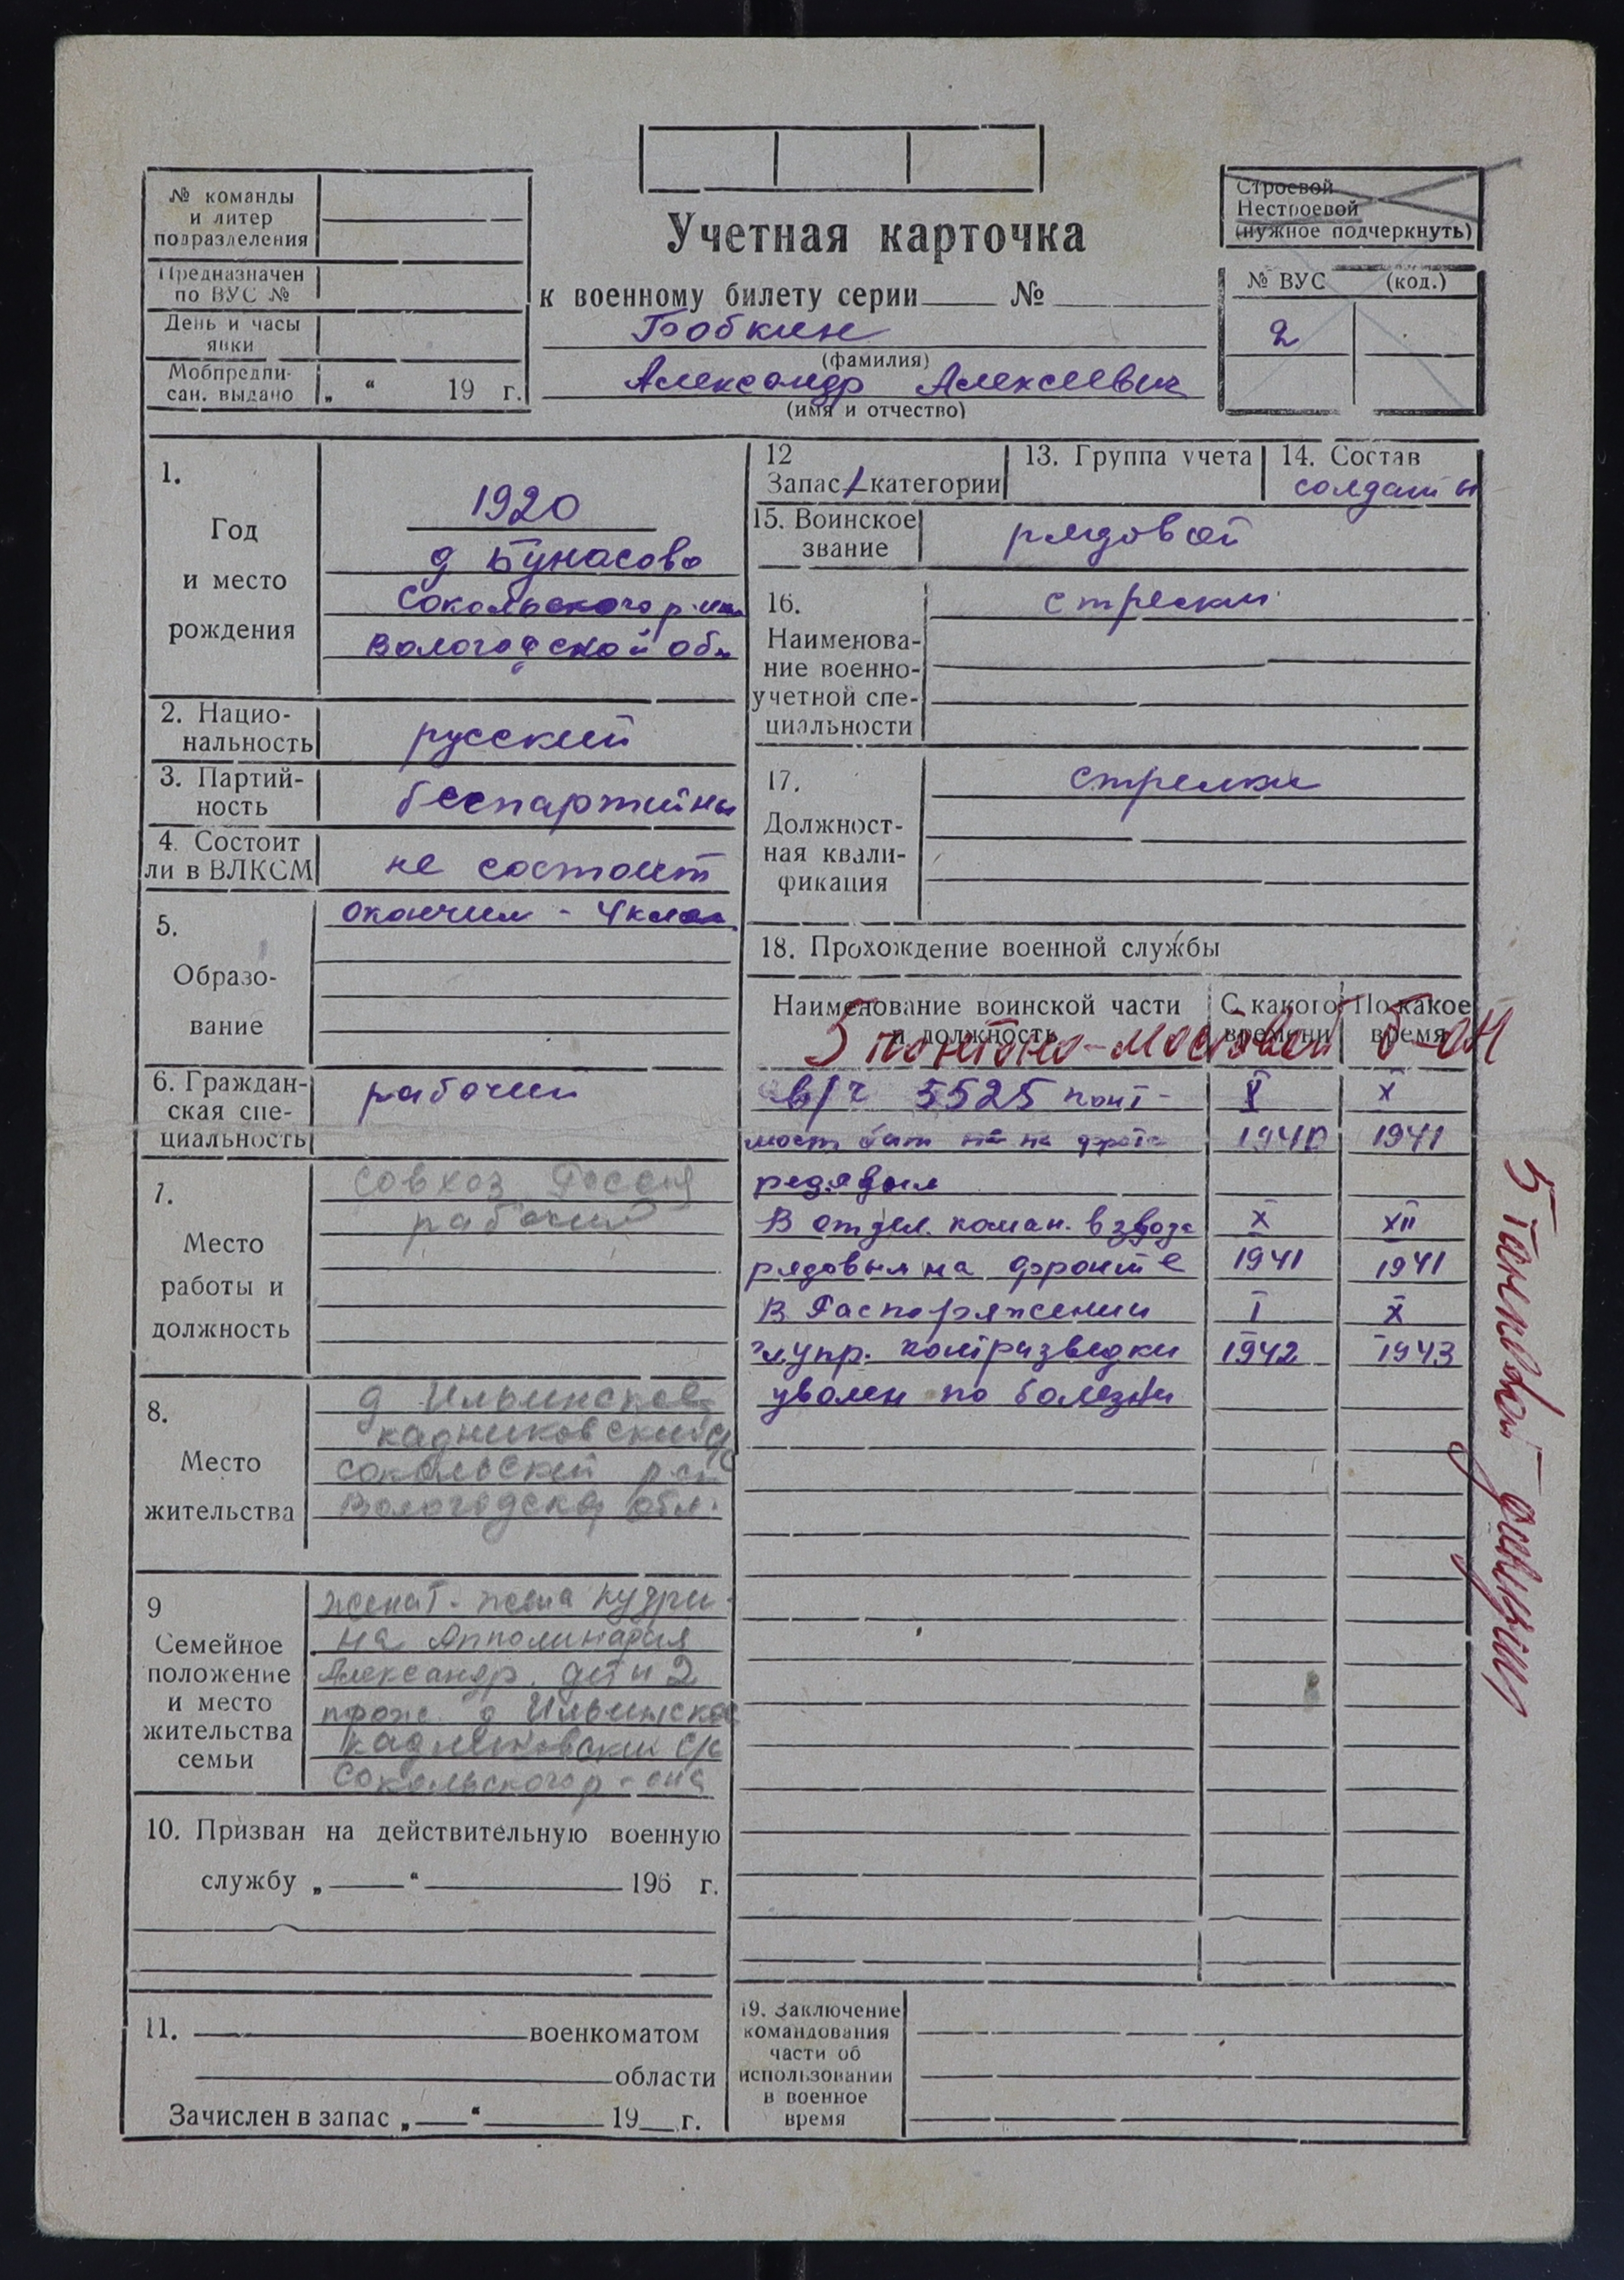 № команды
и литер
подразделения
Предназначен
по ВУС №
День и часы
явки
Мобпредпи-
сан. выдано „ “ 19 г.
Учетная карточка
к военному билету серии № 
Бобкин
(фамилия)
Александр Алексеевич
(имя и отчество)
Строевой
Нестроевой
(нужное подчеркнуть)
№ ВУС (код.)
2
1.
Год
и место
рождения
1920
д Бунасово
Сокольского р-на
Вологодской обл
2. Нацио-
нальность
русский
3. Партий-
ность
беспартийны
4. Состоит
ли в ВЛКСМ
не состоит
5.
Образо-
вание
окончил - 4 клас
6. Граждан-
ская спе-
циальность
рабочий
7.
Место
работы и
должность
совхоз Россия
рабочий
8.
Место
жительства
д Ильинское
кадниковский с/с
сокольский р-он
Вологодской обл.
9
Семейное
положение
и место
жительства
семьи
женат - жена Кудри-
на Апполинария
Александр. дети 2
прож. д Ильинское
кадниковский с/с
Сокольского р-она
10. Призван на действительную военную
службу „ “ 196 г.
11. военкоматом
области
Зачислен в запас „ “ 19 г.
12
Запас 1 категории
13. Группа учета
14. Состав
солдаты
15. Воинское
звание
рядовой
16.
Наименова-
ние военно-
учетной спе-
циальности
стрелки
17.
Должност-
ная квали-
фикация
стрелки
18. Прохождение военной службы
Наименование воинской части
и должность
С какого
времени
По какое
время
5 понтоно-мостовой б-он
в/ч 5525 понт- V X
мост бат на фронте 1940 1941
редовым
В отдел. коман. взвода X XII
рядовым на фронте 1941 1941
В Распоряжении I X
гл. упр. контразведки 1942 1943
уволен по болезни
5 танковой дивизии
19. Заключение
командования
части об
использовании
в военное
время